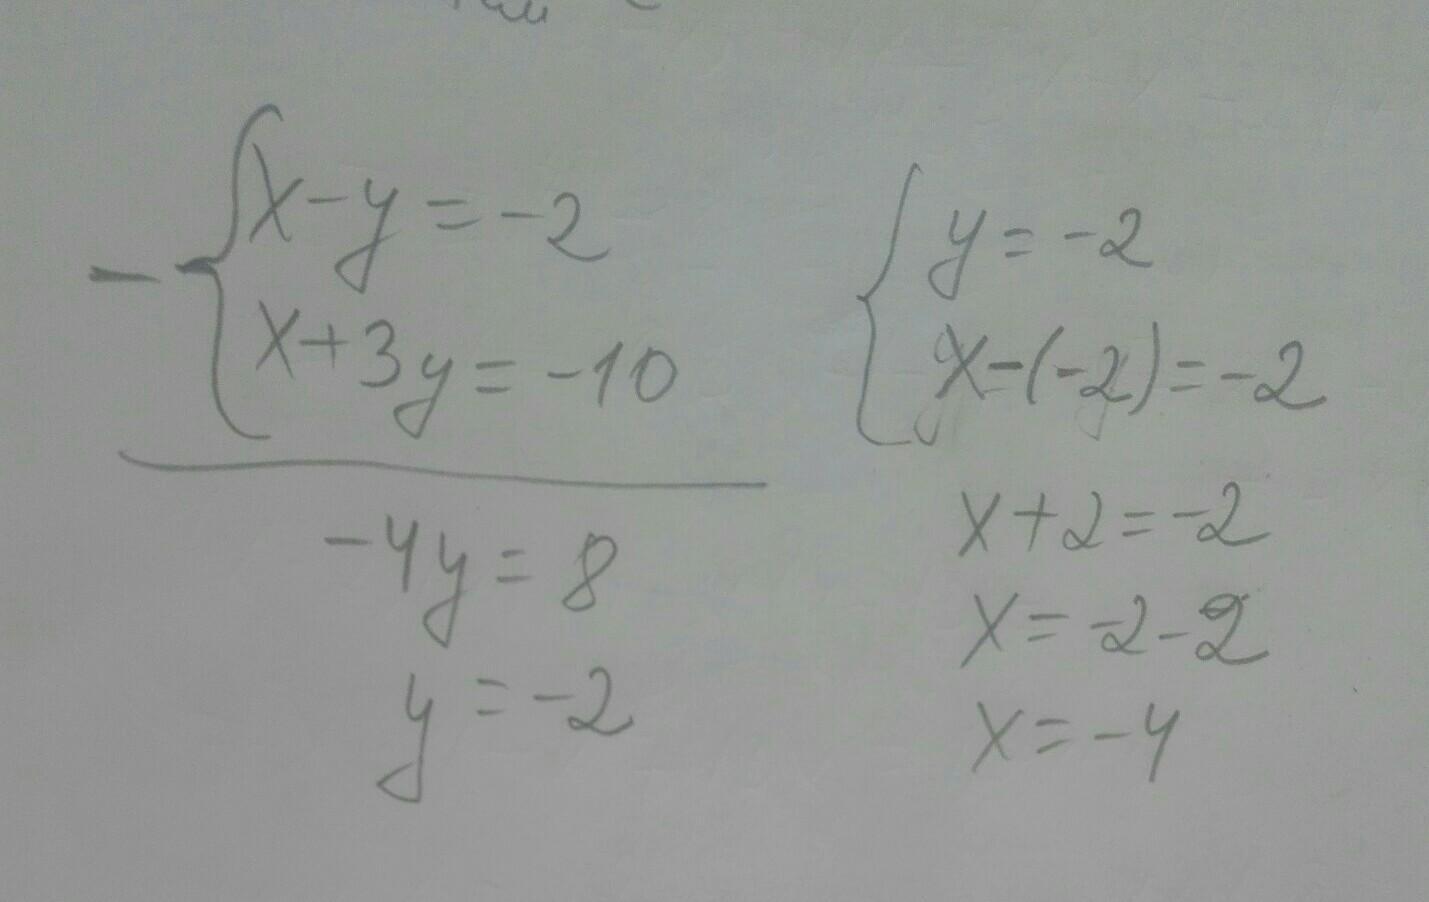 x-y=-2
x+3y=-10
-4y=8
y=-2
y=-2
x-(-2)=-2
x+2=-2
x=-2-2
x=-4